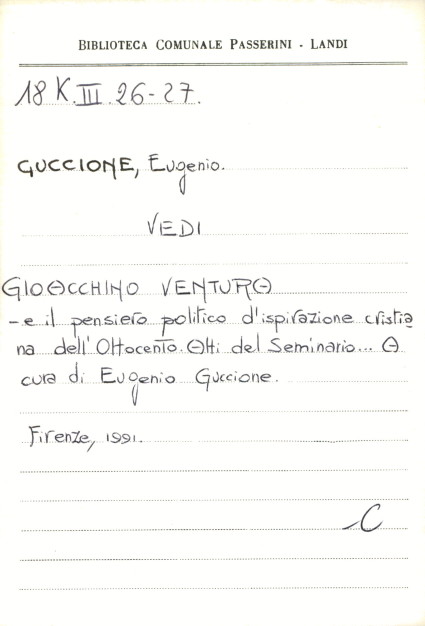 BIBLIOTECA COMUNALE PASSERINI - LANDI
18 K.III.26-27.
GUCCIONE, Eugenio.
VEDI
GIOACCHINO VENTURA
- e il pensiero politico d'ispirazione cristia
na dell'Ottocento. Atti del Seminario... A
cura di Eugenio Guccione.
Firenze, 1991.
C